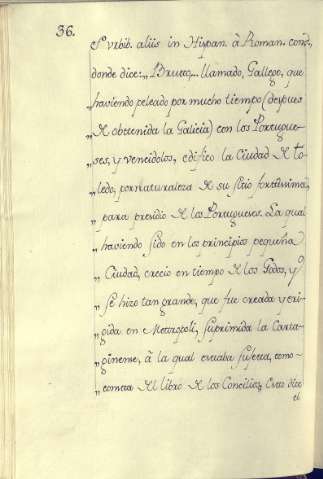 36.
et vrbib. aliis in Hispan. à Roman. cond,
donde dice: „Brutto... llamado, Gallego, que
„ haviendo peleado por mucho tiempo (despues
„ de obtenida la Galicia) con los Portugue-
„ ses, y vencidolos, edifico la Ciudad de to-
„ ledo, por naturaleza de su sitio fortissima,
„ para presidio de los Portugueses. La qual
„ haviendo sido en los principios pequeña
„ Ciudad, crecio en tiempo de los Godos, y
„ se hizo tan grande, que fue creada y eri-
„ gida en Metropoli, suprimida la Carta-
„ ginense, à la qual estaba sujeta, como
„ consta del libro de los Concilios, Esto dice
el